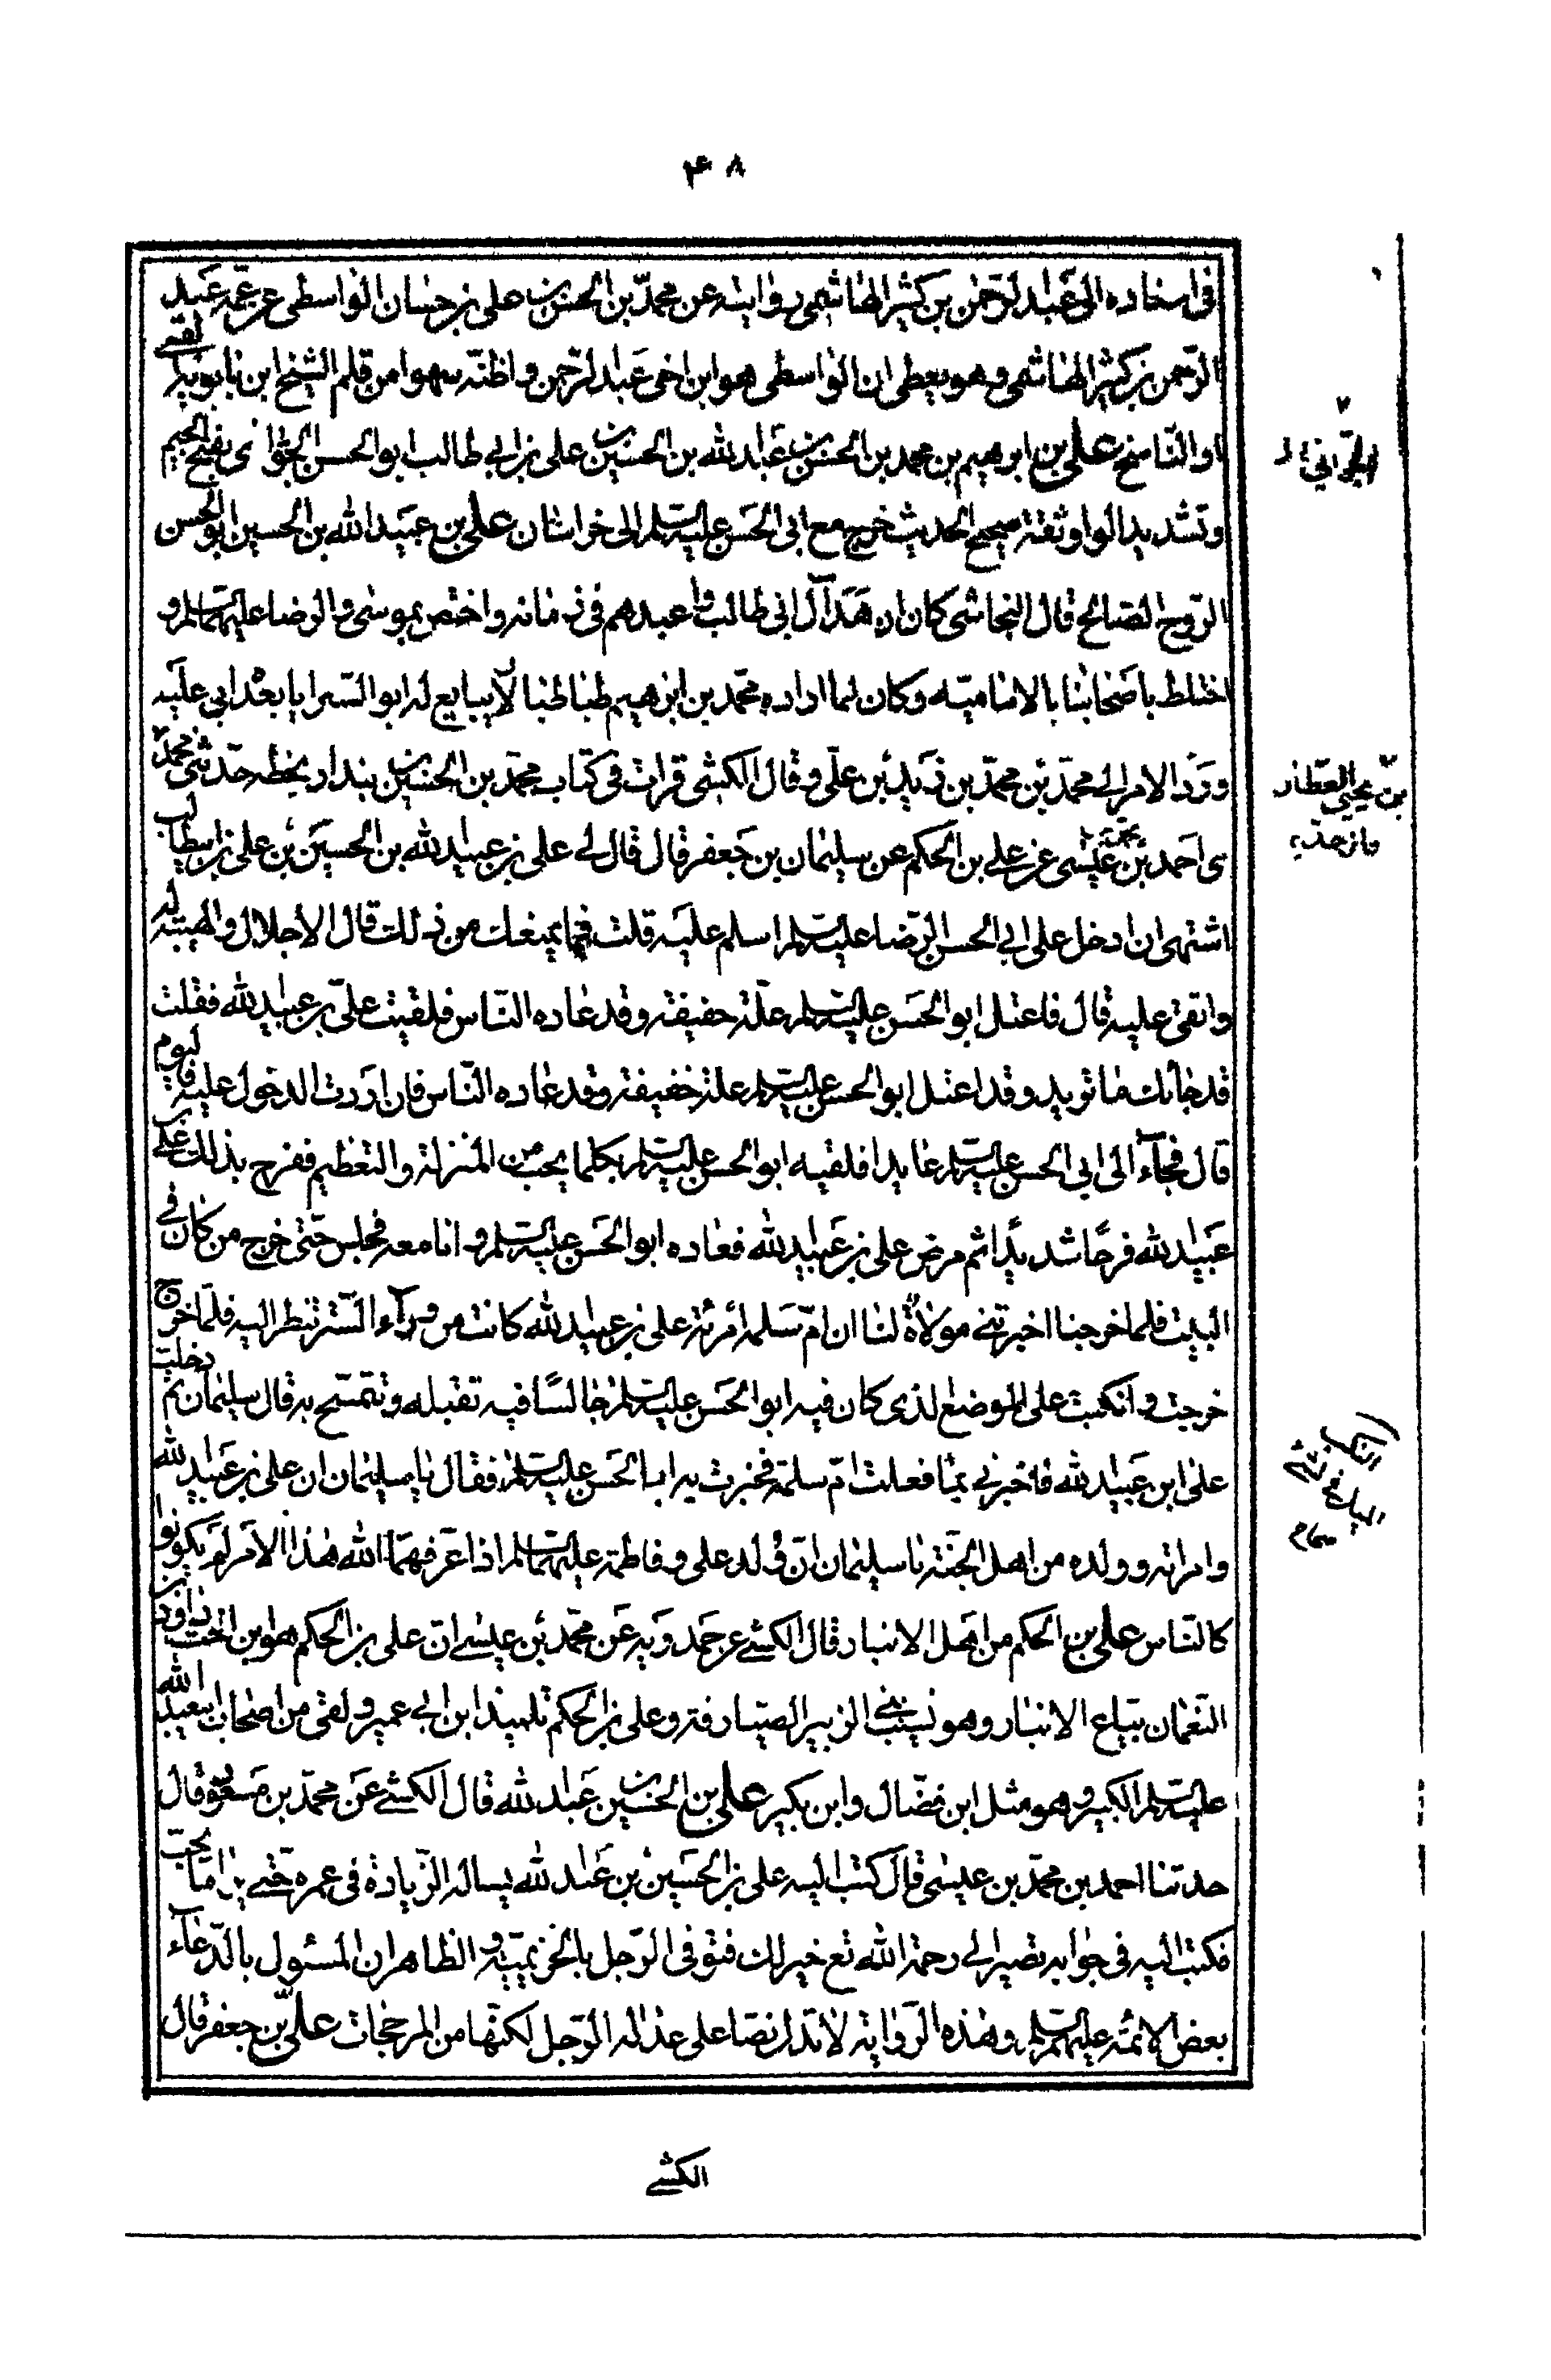 ۴۸
في اسناده الى عبد الرحمن بن كثير الهاشمي روايته عن محمد بن الحسن بن علي بن حسان الواسطي عن عمه عبد
الرحمن بن كثير الهاشمي وهو يعطي ان الواسطي هو ابن اخي عبد الرحمن واظنه سهوا من قلم الشيخ ابن بابويه
او الناسخ علي بن ابرهيم بن محمد بن الحسن بن عبد الله بن الحسين بن علي بن ابي طالب ابو الحسن الجواني بفتح الجيم
وتشديد الواو ثقة صحيح الحديث خرج مع ابي الحسن عليه السلم الى خراسان علي بن عبيد الله بن الحسين ابو الحسن
الزوج الصالح قال النجاشي كان ازهد آل ابي طالب واعبدهم في زمانه واختص بموسى والرضا عليهما السلم و
اختلط باصحابنا الامامية وكان لما اراده محمد بن ابرهيم طباطبا لان يبايع له ابو السرايا بعد ابى عليه
ورد الامر الى محمد بن محمد بن زيد بن علي وقال الكشي قرات في كتاب محمد بن الحسن بن بندار بخطه حدثني محمد
بن يحيى العطار
ى احمد بن محمد بن عيسى عن علي بن الحكم عن سليمان بن جعفر قال قال لي علي بن عبيد الله بن الحسين بن علي بن ابيطالب
اشتهى ان ادخل على ابي الحسن الرضا عليه السلم اسلم عليه قلت فما يمنعك من ذلك قال الاجلال والهيبة له
واتقى عليه قال فاعتل ابو الحسن عليه السلم علة خفيفة وقد عاده الناس فلقيت علي بن عبيد الله فقلت
قد جائك ما تريد وقد اعتل ابو الحسن عليه السلم علة خفيفة وقد عاده الناس فان اردت الدخول عليه فاليوم
قال فجاء الى ابي الحسن عليه السلم عايدا فلقيه ابو الحسن عليه السلم بكلما يحب من المنزلة والتعظيم ففرح بذلك علي بن
عبيد الله فرحا شديدا ثم مرض علي بن عبيد الله فعاده ابو الحسن عليه السلم وانا معه فجلس حتى خرج من كان في
البيت فلما خرجنا اخبرتني مولاة لنا ان ام سلمة امرئة علي بن عبيد الله كانت من وراء الستر تنظر اليه فلما خرج
خرجت وانكبت على الموضع الذي كان فيه ابو الحسن عليه السلم جالسا فيه تقبله وتتمسح به قال سليمان ثم دخلت
على ابن عبيد الله فاخبرني بما فعلت ام سلمة فخبرت به ابا الحسن عليه السلم فقال يا سليمان ان علي بن عبيد الله
وامراته وولده من اهل الجنة يا سليمان ان ولد علي وفاطمة عليهما السلم اذا عرفهم الله هذا الامر لم يكونوا
كالناس علي بن الحكم من اهل الانبار قال الكشي عن حمدويه عن محمد بن عيسى ان علي بن الحكم هو ابن اخت داود بن
النعمان بياع الانبار وهو نسيب بني الزبير الصيارفة وعلي بن الحكم تلميذ ابن ابي عمير ولقى من اصحاب ابيعبد الله
عليه السلم الكبير وهو مثل ابن فضال وابن بكير علي بن الحسين بن عبد الله قال الكشي عن محمد بن مسعود قال
حدثنا احمد بن محمد بن عيسى قال كتب اليه علي بن الحسين بن عبد الله يساله الزيادة في عمره حتى يرى ما يحب
فكتب اليه في جوابه تصير الى رحمة الله تع خير لك فتوفى الرجل بالخزيمية والظاهر ان المسئول بالدعاء
بعض الائمة عليهم السلم وهذه الرواية لا تدل نصا على عدالة الرجل لكنها من المرجحات علي بن جعفر قال
الكشي